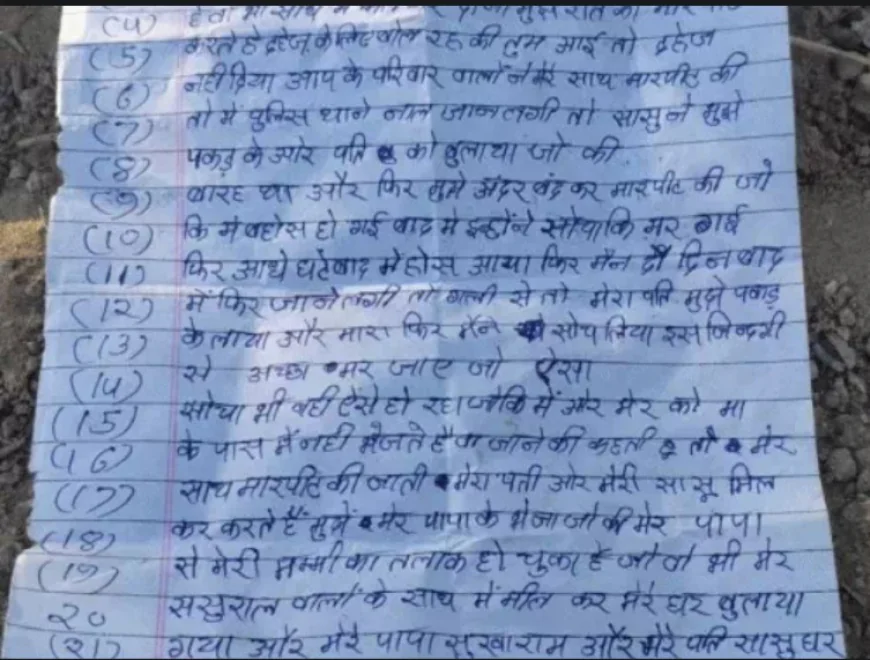 (4)
(5) करते है दहेज के लिए बोल रह की तुम आई तो दहेज
(6) नही दिया आप के परिवार वालों ने मेरे साथ मारपीट की
(7) तो में पुलिस थाने जाने लगी तो सासु ने मुझे
(8) पकड़ के और पति को बुलाया जो की
(9) बारह था और फिर मुझे अंदर बंद कर मारपीट की जो
(10) कि में बहोस हो गई बाद मे इन्होंने सोचाकि मर गई
(11) फिर आधे घटे बाद मे होस आया फिर मैंन दो दिन बाद
(12) में फिर जाने लगी तो गली से तो मेरा पति मुझे पकड़
(13) के लाया और मारा फिर मैंने सोच लिया इस जिन्दगी
(14) से अच्छा मर जाए जो ऐसा
(15) सोचा भी वही ऐसे हो रहा जोकि में और मेर को मा
(16) के पास में नही भेजते है जाने की कहती तो मेर
(17) साथ मारपीट की जाती मेरा पती ओर मेरी सासू मिल
(18) कर करते हैं मुझे मेर पापा के भेजा जो की मेर पापा
(19) से मेरी मम्मी का तलाक हो चुका है जो वो भी मेर
२० ससुराल वालों के साथ में मील कर मेरे घर बुलाया
(21) गया और मेरे पापा सुखाराम और मेरे पति सासु घर